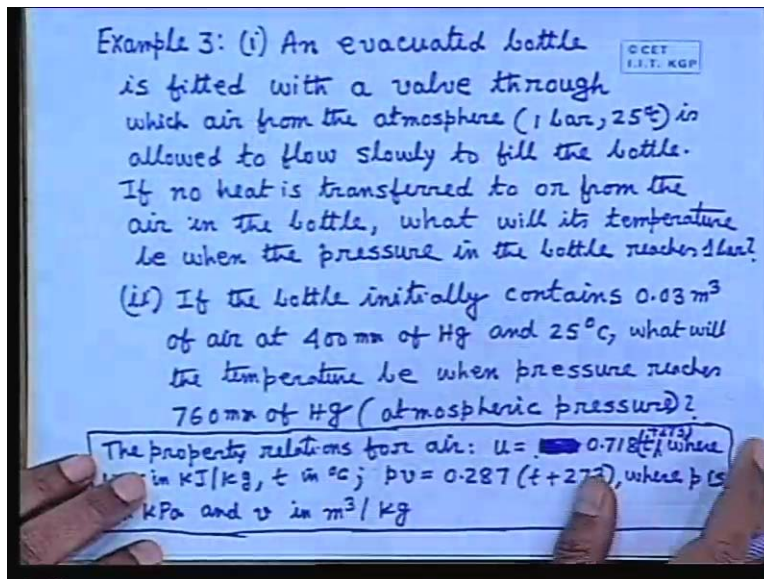 Example 3: (i) An evacuated bottle
© CET
I.I.T. KGP
is fitted with a valve through
which air from the atmosphere (1 bar, 25°C) is
allowed to flow slowly to fill the bottle.
If no heat is transferred to or from the
air in the bottle, what will its temperature
be when the pressure in the bottle reaches 1 bar?
(ii) If the bottle initially contains 0.03 m³
of air at 400 mm of Hg and 25°C, what will
the temperature be when pressure reaches
760 mm of Hg (atmospheric pressure)?
The property relations for air: u = 0.718(t+273), where
in kJ/kg, t in °C; pv = 0.287 (t+273), where p is
kPa and v in m³/kg